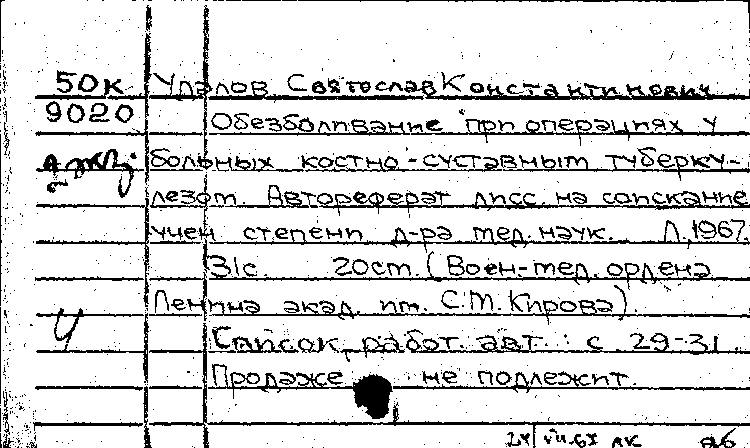 50к Упалов Святослав Константинович
9020 Обезболивание при операциях у
больных костно-суставным туберку-
лезом. Автореферат дисс. на соискание
учен степени д-ра мед. наук. Л, 1967.
31с. 20см. (Воен-мед. ордена
Ленина акад. им. С.М. Кирова).
Список работ авт.: с 29-31.
Продаже не подлежит.